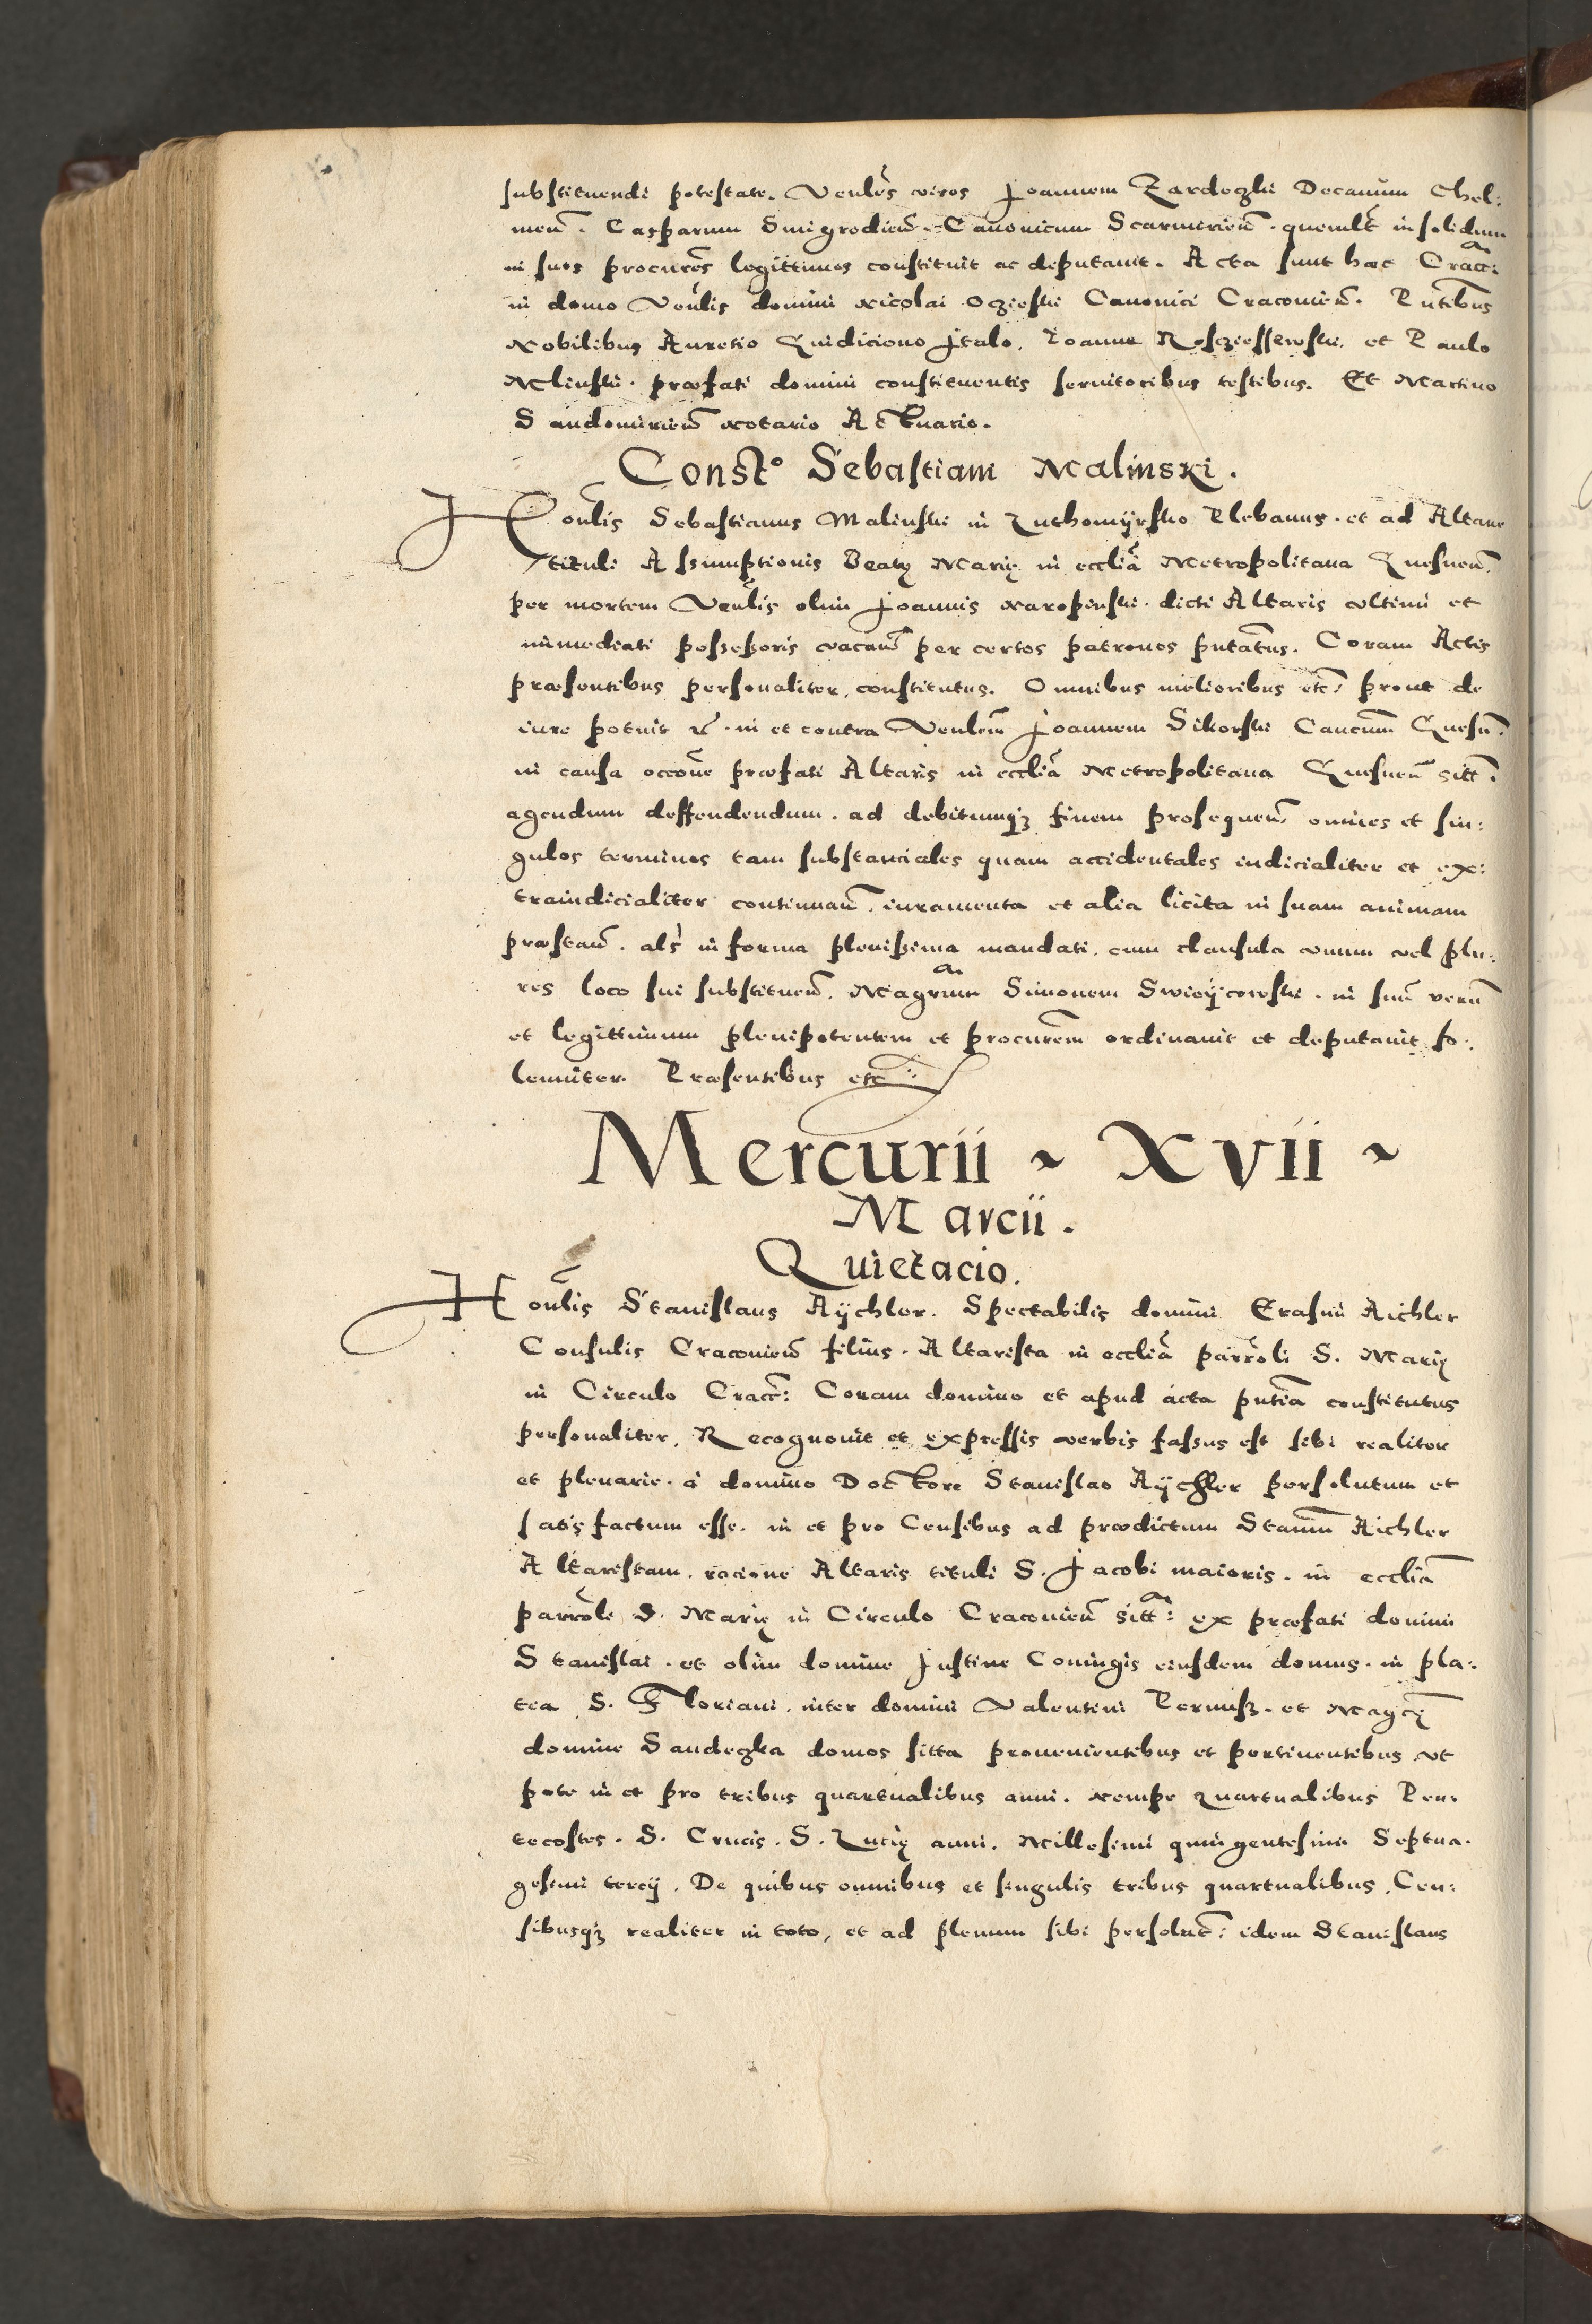 substituendi potestate. Venles viros Joannem Zardeczki Decanum Chel:
men. Casparum Smigrodien. Canonicum Scarmirien. quemlt in solidum
in suos procures legittimos constituit ac deputauit. Acta sunt hæc Cracc:
in domo Venlis domini Nicolai Oczieski Canonici Cracouien. Pntibus
Nobilibus Aurelio Italo, Joanne et Paulo
Mlinski. præfati domini constituentis seruitoribus testibus. Et Martino
Sandomirien Notario Actuario.
Const° Sebastiani Malinski.
Honlis Sebastianus Malinski in Luthomÿrsko Plebanus. et ad Altare
tituli Assumptionis Beatę Marię in ecclia Metropolitana Gnesnen.
per mortem Venlis olim Joannis Naropinski. dicti Altaris vltimi et
immediati possessoris vacan per certos patronos pntatus. Coram Actis
præsentibus personaliter, constitutus. Omnibus melioribus etc: prout de
iure potuit in et contra Venlem Joannem Sikorski Cancum Gnesn.
in causa occone præfati Altaris in ecclia Metropolitana Gnesnen sitt.
agendum deffendendum. ad debitumq3 finem prosequen omnes et sin:
gulos terminos tam substanciales quam accidentales iudicialiter et ex:
traiudicialiter continuan, iuramenta et alia licita in suam animam
præstan. als in forma plenissima mandati, cum clausula vnum vel plu:
res loco sui substituen. Magrum Simonem in suu veru
et legittimum plenipotentem et procurem ordinauit et deputauit so:
lemniter. Præsentibus etc:
Mercurii ~ Xvii ~
Marcii.
Quietacio.
Honlis Stanislaus Aÿchler. Spectabilis domini Erasmi Aichler
Consulis Cracouien filius. Altarista in ecclia parroli S. Marię
in Circulo Cracc: Coram domino et apud acta pntia constitutus
personaliter, Recognouit et expressis verbis fassus est sibi realiter
et plenarie. à domino Doctore Stanislao Aÿchler persolutum et
satisfactum esse. in et pro Censibus ad prædictum Stanum Aichler
Altaristam, racione Altaris tituli S. Jacobi maioris. in ecclia
parroli S. Marię in Circulo Cracouien sitt: ex præfati domini
Stanislai. et olim domine Justine Coningis eiusdem domus. in pla:
tea S. Floriani. inter domini Valentini et Magcę
domine Sandegka domos sitta prouenientibus et pertinentibus vt
pote in et pro tribus quartualibus anni. Nempe quartualibus Pen:
tecostes. S. Crucis. S. Lucię anni. Millesimi quingentesimi Septua.
gesimi tercij. De quibus omnibus et singulis tribus quartualibus, Cen:
sibusq3 realiter in toto, et ad plenum sibi persolut: idem Stanislaus